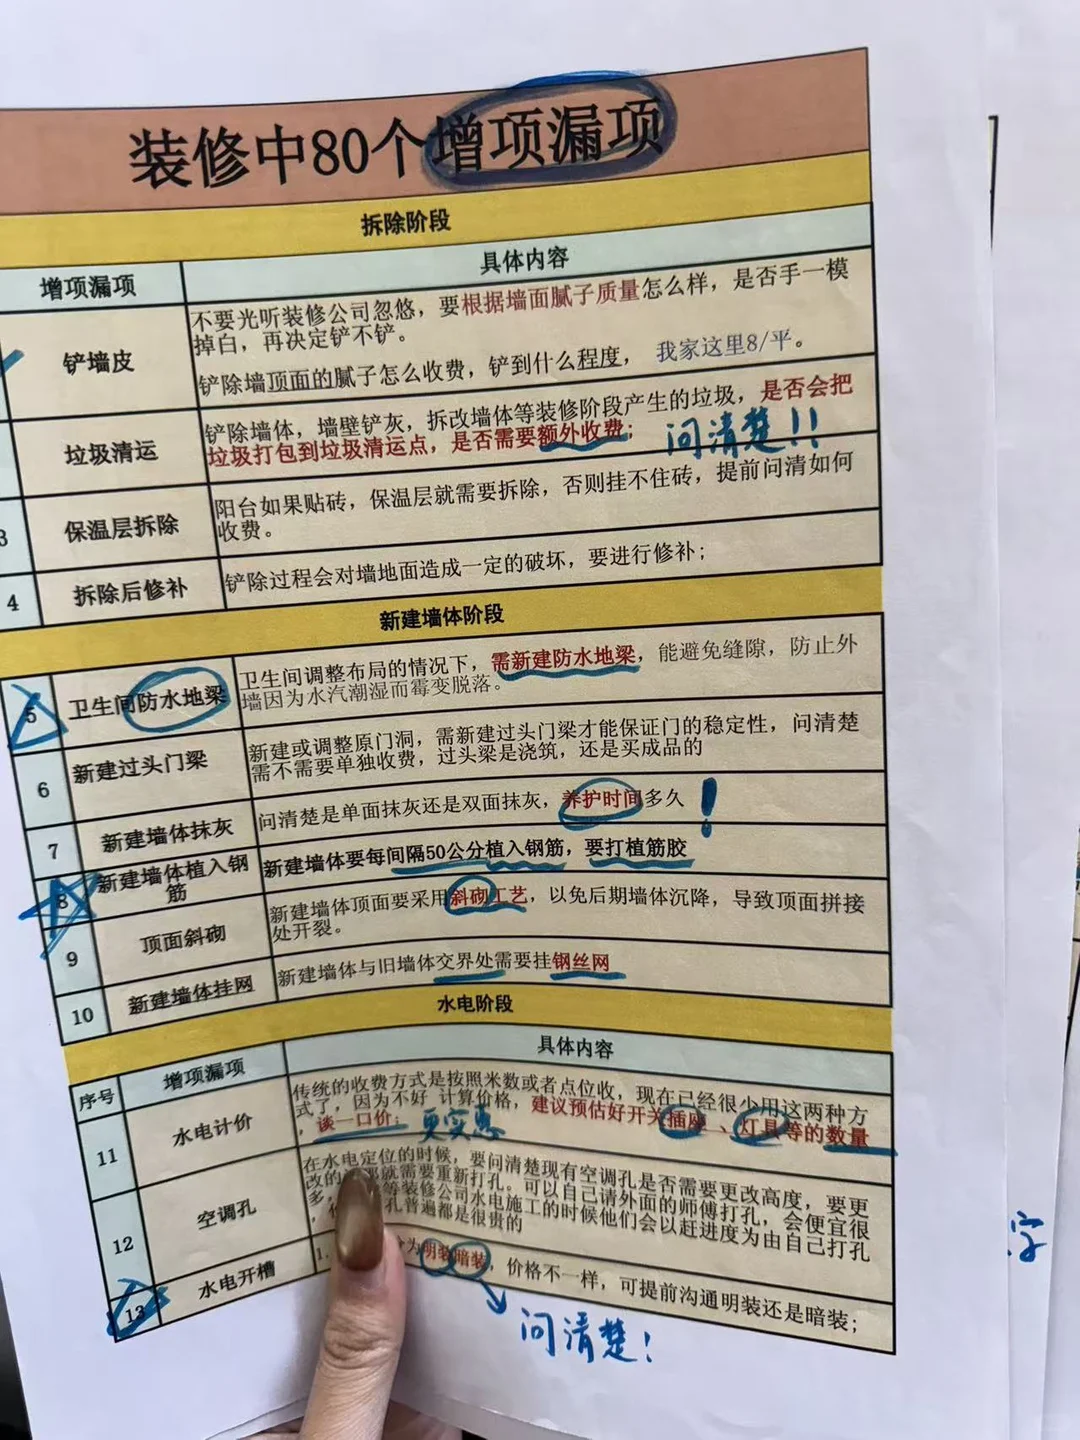 装修中80个增项漏项
拆除阶段
增项漏项
具体内容
铲墙皮
不要光听装修公司忽悠，要根据墙面腻子质量怎么样，是否手一模
掉白，再决定铲不铲。
铲除墙顶面的腻子怎么收费，铲到什么程度， 我家这里8/平。
垃圾清运
铲除墙体，墙壁铲灰，拆改墙体等装修阶段产生的垃圾，是否会把
垃圾打包到垃圾清运点，是否需要额外收费；
问清楚!!
3
保温层拆除
阳台如果贴砖，保温层就需要拆除，否则挂不住砖，提前问清如何
收费。
4
拆除后修补
铲除过程会对墙地面造成一定的破坏，要进行修补；
新建墙体阶段
5
卫生间防水地梁
卫生间调整布局的情况下，需新建防水地梁，能避免缝隙，防止外
墙因为水汽潮湿而霉变脱落。
6
新建过头门梁
新建或调整原门洞，需新建过头门梁才能保证门的稳定性，问清楚
需不需要单独收费，过头梁是浇筑，还是买成品的
7
新建墙体抹灰
问清楚是单面抹灰还是双面抹灰，养护时间多久
!
8
新建墙体植入钢
筋
新建墙体要每间隔50公分植入钢筋，要打植筋胶
9
顶面斜砌
新建墙体顶面要采用斜砌工艺，以免后期墙体沉降，导致顶面拼接
处开裂。
10
新建墙体挂网
新建墙体与旧墙体交界处需要挂钢丝网
水电阶段
序号
增项漏项
具体内容
11
水电计价
传统的收费方式是按照米数或者点位收，现在已经很少用这两种方
式了，因为不好 计算价格，建议预估好开关插座、灯具等的数量
，谈一口价；
更实惠
12
空调孔
在水电定位的时候，要问清楚现有空调孔是否需要更改高度，要更
改的 都就需要重新打孔。可以自己请外面的师傅打孔，会便宜很
多， 等装修公司水电施工的时候他们会以赶进度为由自己打孔
， 孔普遍都是很贵的
13
水电开槽
1. 分为明装暗装，价格不一样，可提前沟通明装还是暗装；
问清楚!
字